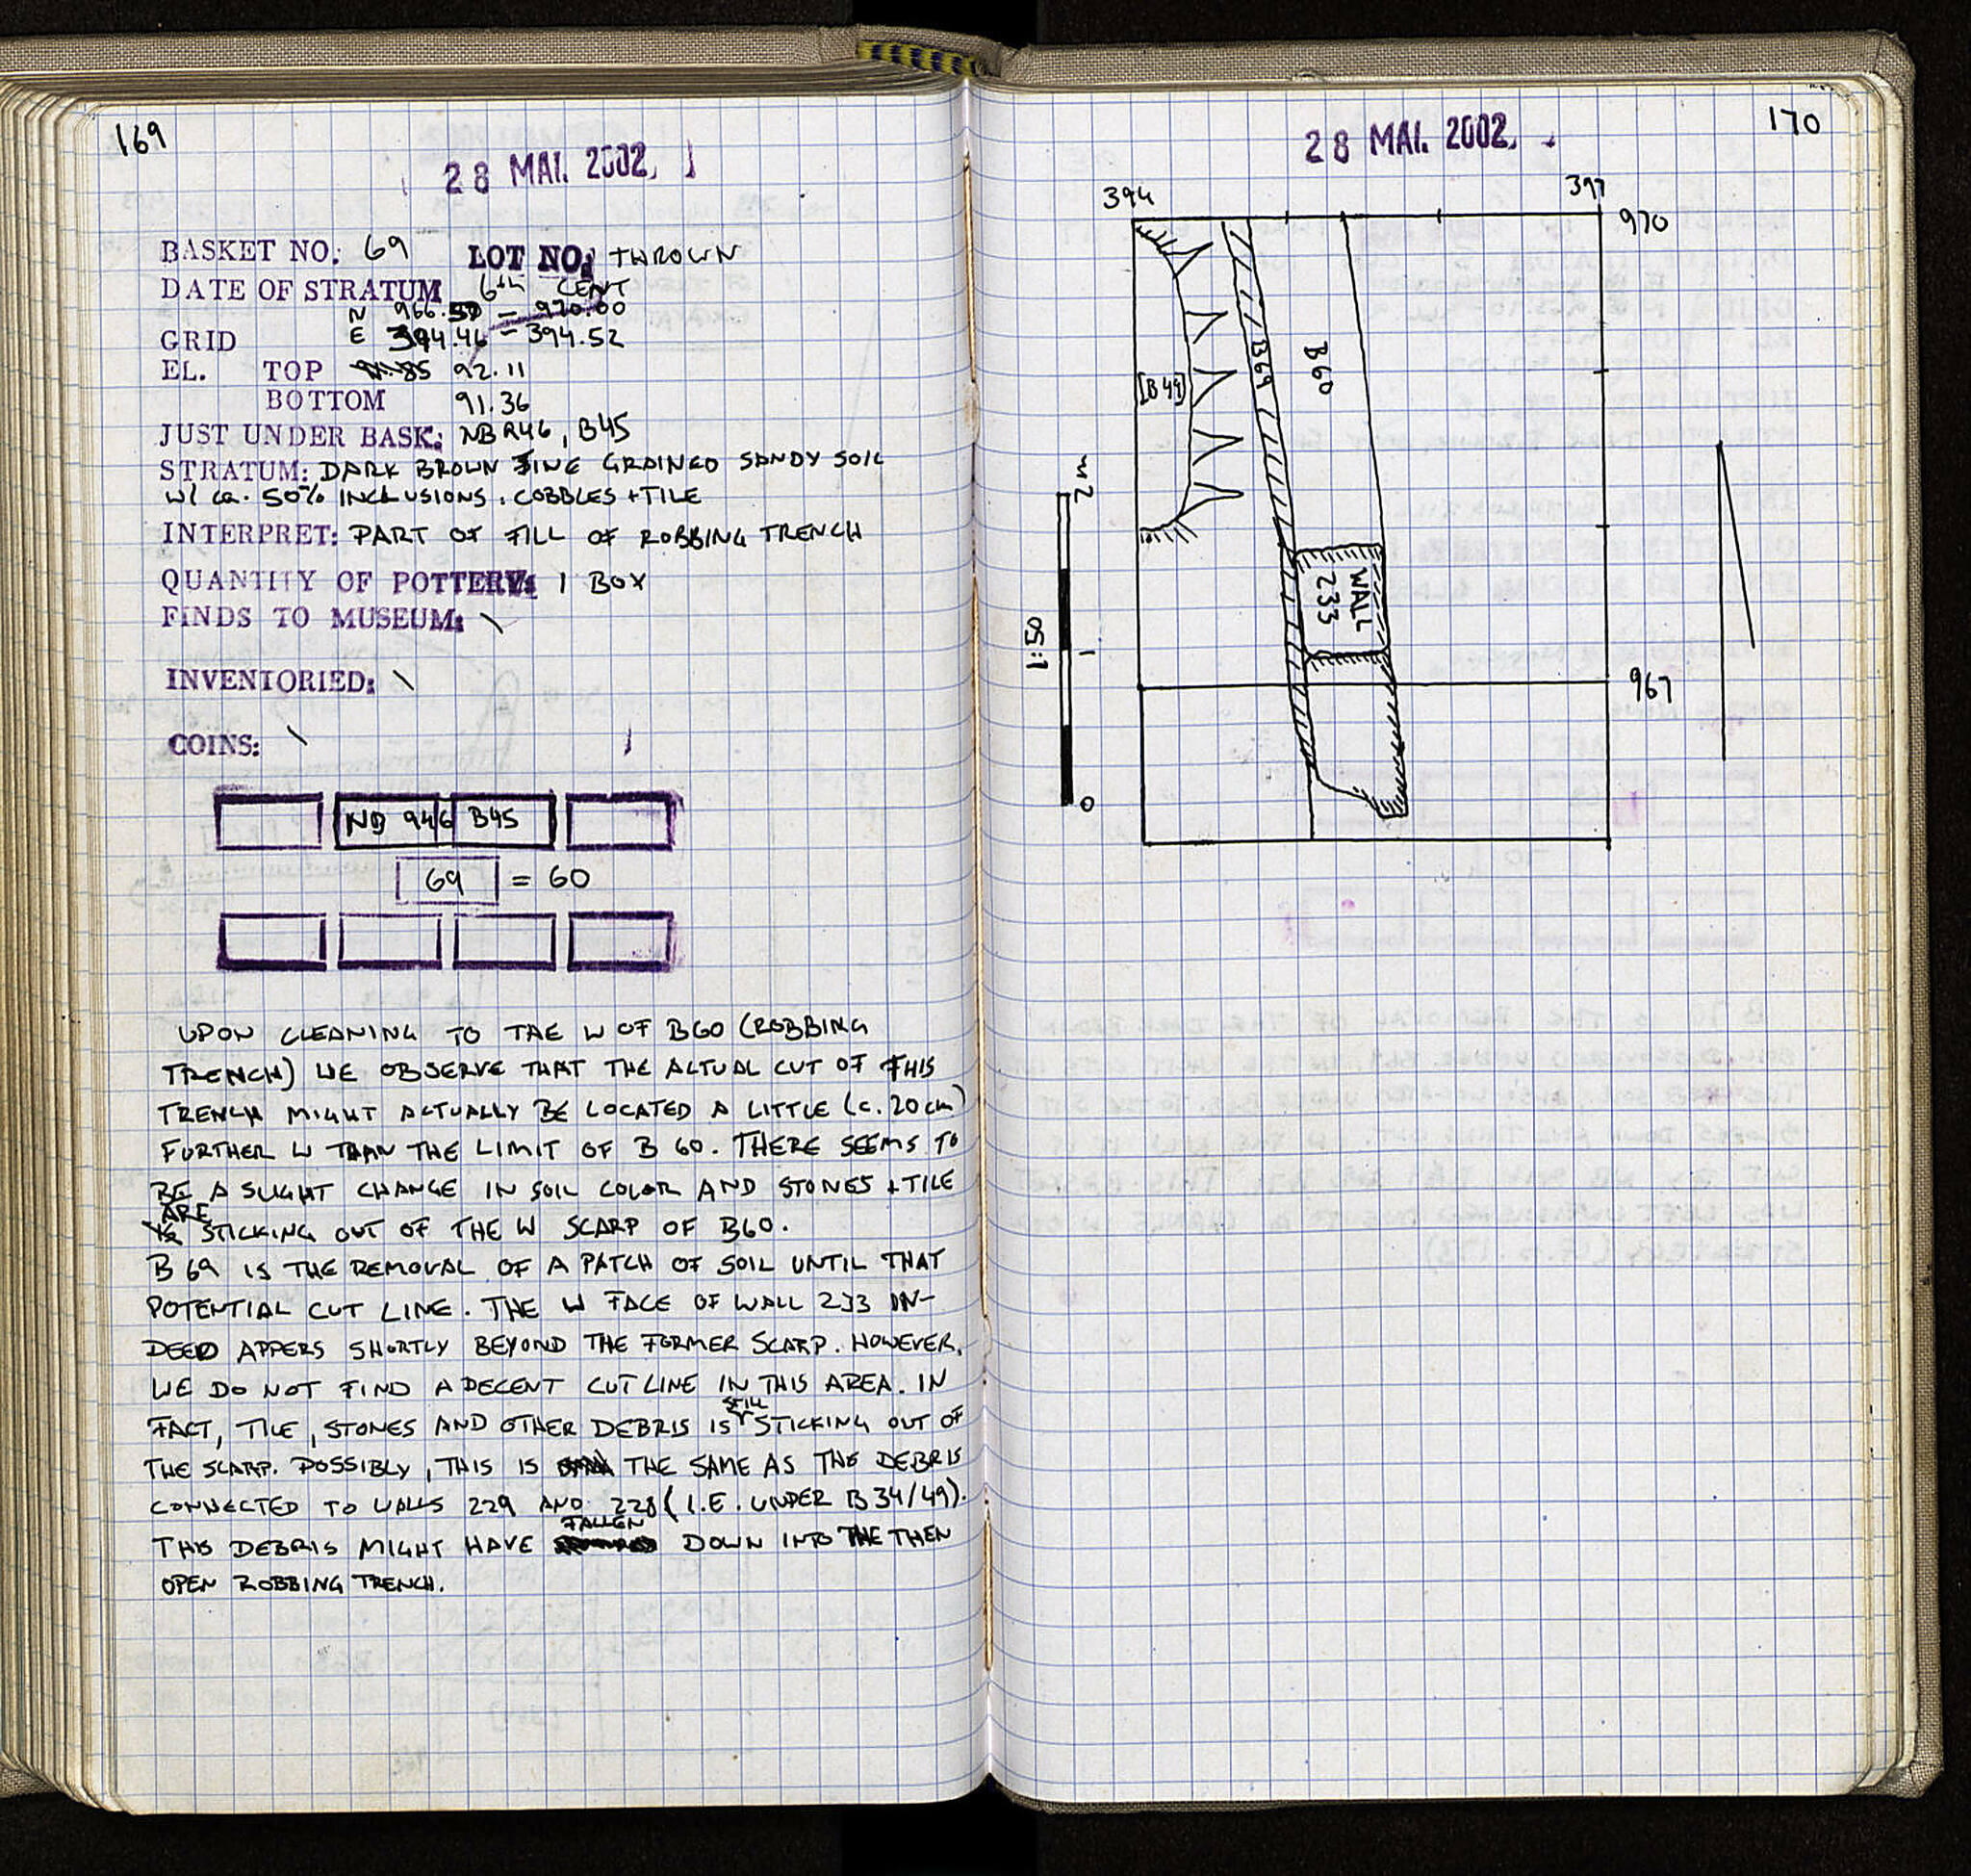 169
28 MAI. 2002
BASKET NO: 69 LOT NO: THROWN
DATE OF STRATUM 6th CENT
N 966.50 – 970.00
GRID E 394.46 – 394.52
EL. TOP 92.11
BOTTOM 91.36
JUST UNDER BASK: NB 946, B45
STRATUM: DARK BROWN FINE GRAINED SANDY SOIL
W/ ca. 50% INCLUSIONS, COBBLES + TILE
INTERPRET: PART OF FILL OF ROBBING TRENCH
QUANTITY OF POTTERY: 1 BOX
FINDS TO MUSEUM: \
INVENTORIED: \
COINS: \
NB 946 B45
69 = 60
UPON CLEANING TO THE W OF B60 (ROBBING
TRENCH) WE OBSERVE THAT THE ACTUAL CUT OF THIS
TRENCH MIGHT ACTUALLY BE LOCATED A LITTLE (c. 20cm)
FURTHER W THAN THE LIMIT OF B 60. THERE SEEMS TO
BE A SLIGHT CHANGE IN SOIL COLOR AND STONES + TILE
ARE STICKING OUT OF THE W SCARP OF B60.
B 69 IS THE REMOVAL OF A PATCH OF SOIL UNTIL THAT
POTENTIAL CUT LINE. THE W FACE OF WALL 233 IN-
DEED APPERS SHORTLY BEYOND THE FORMER SCARP. HOWEVER,
WE DO NOT FIND A DECENT CUT LINE IN THIS AREA. IN
FACT, TILE, STONES AND OTHER DEBRIS IS STILL STICKING OUT OF
THE SCARP. POSSIBLY, THIS IS THE SAME AS THE DEBRIS
CONNECTED TO WALLS 229 AND 228 (I.E. UNDER B34/49).
THIS DEBRIS MIGHT HAVE FALLEN DOWN INTO THE THEN
OPEN ROBBING TRENCH.
170
28 MAI. 2002
394
397
970
[B49]
B69
B60
WALL
233
967
2m
1
0
1:50